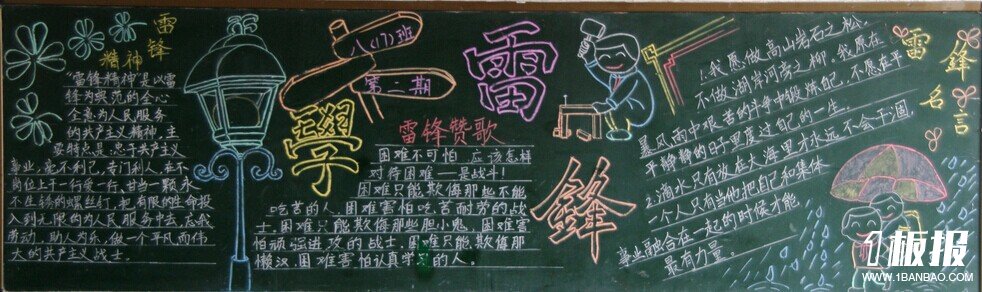 雷锋
精神
"雷锋精神"是以雷
锋为典范的全心
全意为人民服务
的共产主义精神,主
要特点是:忠于共产主义
事业,毫不利己,专门利人,在不
岗位上干一行爱一行,甘当一颗永
不生锈的螺丝钉,把有限的生命投
入到无限的为人民服务中去,忘我
劳动,助人为乐,做一个平凡而伟
大的共产主义战士.
八(17)班
第二期
學
雷
鋒
雷锋赞歌
困难不可怕 应该怎样
对待困难—是战斗!
困难只能欺侮那些不能
吃苦的人,困难害怕吃苦耐劳的战
士.困难只能欺侮那些胆小鬼,困难害
怕顽强进攻的战士,困难只能欺侮那
懒汉,困难害怕认真学习的人.
1.我愿做高山岩石之松,
不做湖岸河旁之柳.我愿在
暴风雨中艰苦的斗争中锻炼自己,不愿在平
平静静的日子里度过自己的一生.
2.滴水只有放在大海里才永远不会干涸,
一个人只有当他把自己和集体
事业融合在一起的时候才能
最有力量.
雷
鋒
名
言
1板报
WWW.1BANBAO.COM